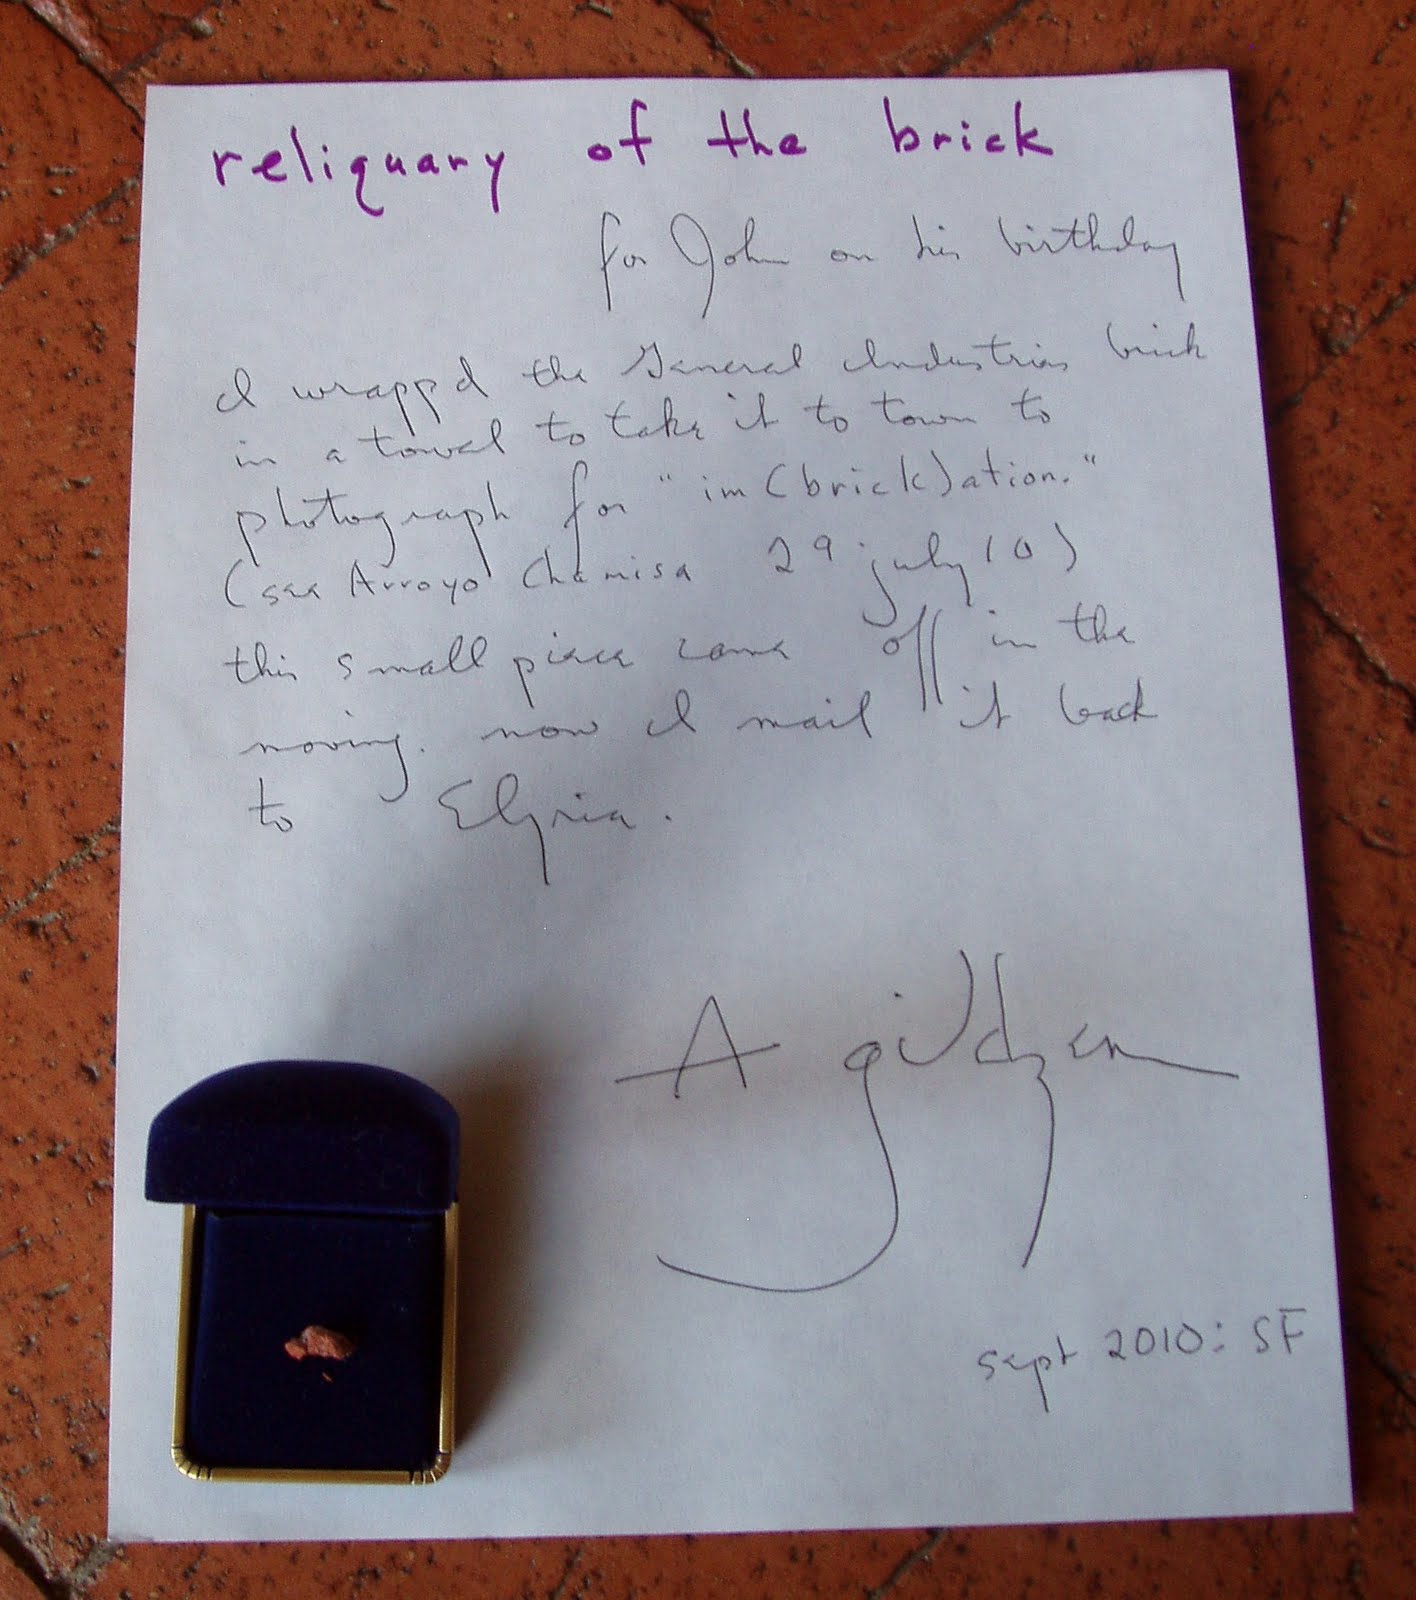 reliquary of the brick
for John on his birthday
I wrapp d the General Industries brick
in a towel to take it to town to
photograph for "im(brick)ation."
(see Arroyo Chamisa 29 july 10)
this small piece came off in the
moving. now I mail it back
to Elyria.
A gildzen
sept 2010: SF